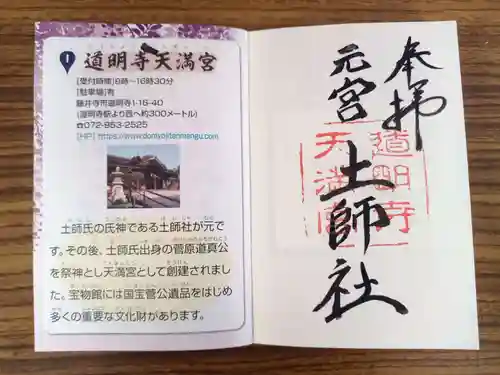 1 道明寺天満宮
[受付時間]8時~16時30分
[駐車場]有
藤井寺市道明寺1-16-40
(道明寺駅より西へ約300メートル)
☎072-953-2525
[HP] https://www.domyojitenmangu.com
土師氏の氏神である土師社が元で
す。その後、土師氏出身の菅原道真公
を祭神とし天満宮として創建されまし
た。宝物館には国宝菅公遺品をはじめ
多くの重要な文化財があります。
奉拝
元宮 土師社
道明寺
天満宮